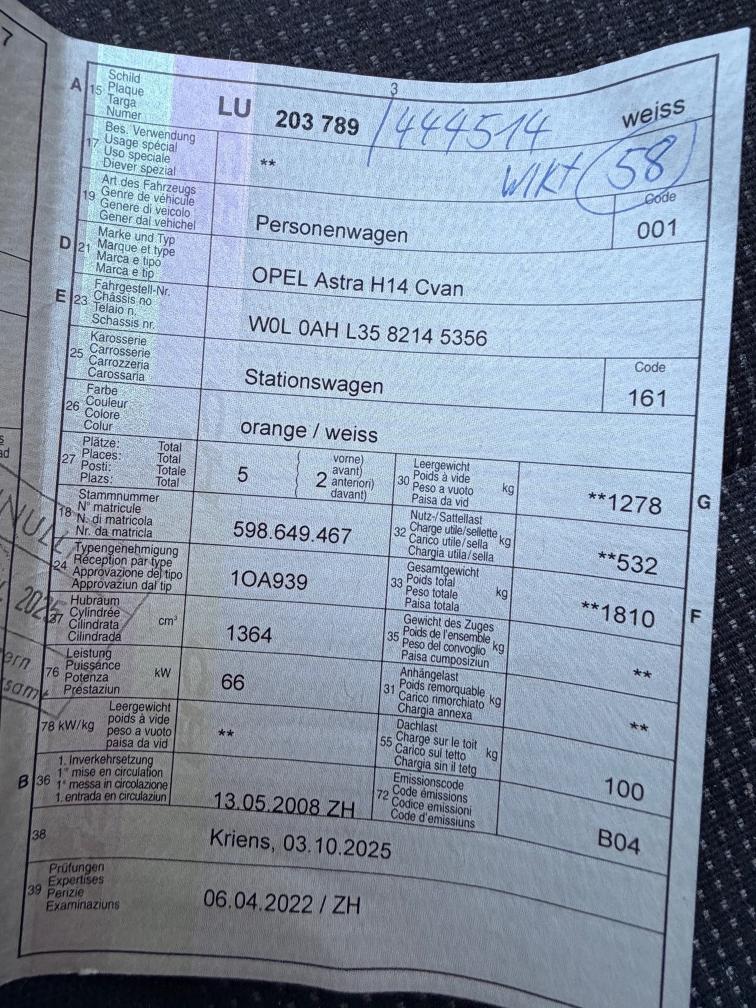 7
3
A 15 Schild
Plaque
Targa
Numer
LU 203 789 /444514 weiss
17 Bes. Verwendung
Usage spécial
Uso speciale
Diever spezial
**
WIKT 58
19 Art des Fahrzeugs
Genre de véhicule
Genere di veicolo
Gener dal vehichel
Personenwagen
Code
001
D 21 Marke und Typ
Marque et type
Marca e tipo
Marca e tip
OPEL Astra H14 Cvan
E 23 Fahrgestell-Nr.
Châssis no
Telaio n.
Schassis nr.
W0L 0AH L35 8214 5356
25 Karosserie
Carrosserie
Carrozzeria
Carossaria
Stationswagen
Code
161
26 Farbe
Couleur
Colore
Colur
orange / weiss
27 Plätze: Total
Places: Total
Posti: Totale
Plazs: Total
5
2 vorne)
avant)
anteriori)
davant)
30 Leergewicht
Poids à vide
Peso a vuoto kg
Paisa da vid
**1278 G
18 Stammnummer
N° matricule
N. di matricola
Nr. da matricla
598.649.467
32 Nutz-/Sattellast
Charge utile/sellette
Carico utile/sella kg
Chargia utila/sella
**532
24 Typengenehmigung
Réception par type
Approvazione del tipo
Approvaziun dal tip
1OA939
33 Gesamtgewicht
Poids total
Peso totale kg
Paisa totala
**1810 F
37 Hubraum
Cylindrée
Cilindrata cm³
Cilindrada
1364
35 Gewicht des Zuges
Poids de l'ensemble
Peso del convoglio kg
Paisa cumposiziun
**
76 Leistung
Puissance
Potenza kW
Prestaziun
66
31 Anhängelast
Poids remorquable
Carico rimorchiato kg
Chargia annexa
**
78 kW/kg Leergewicht
poids à vide
peso a vuoto
paisa da vid
**
55 Dachlast
Charge sur le toit
Carico sul tetto kg
Chargia sin il tetg
100
B 36 1. Inverkehrsetzung
1re mise en circulation
1a messa in circolazione
1. entrada en circulaziun
13.05.2008 ZH
72 Emissionscode
Code émissions
Codice emissioni
Code d'emissiuns
B04
38 Kriens, 03.10.2025
39 Prüfungen
Expertises
Perizie
Examinaziuns
06.04.2022 / ZH
NULL
2025
ern